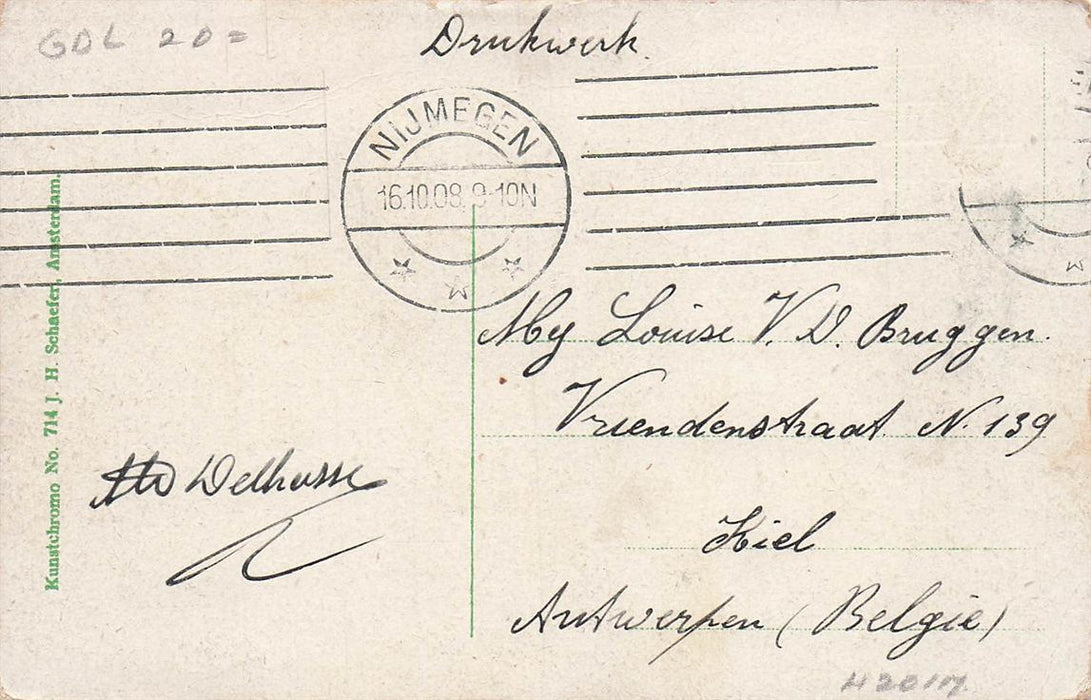 GDL 20=
Drukwerk.
NIJMEGEN
16.10.08. 9-10N
Kunstchromo No. 714 J. H. Schaefer, Amsterdam.
Mej Louise V. D. Bruggen.
Vriendenstraat N. 139
Kiel
Antwerpen (Belgie)
Delhusse